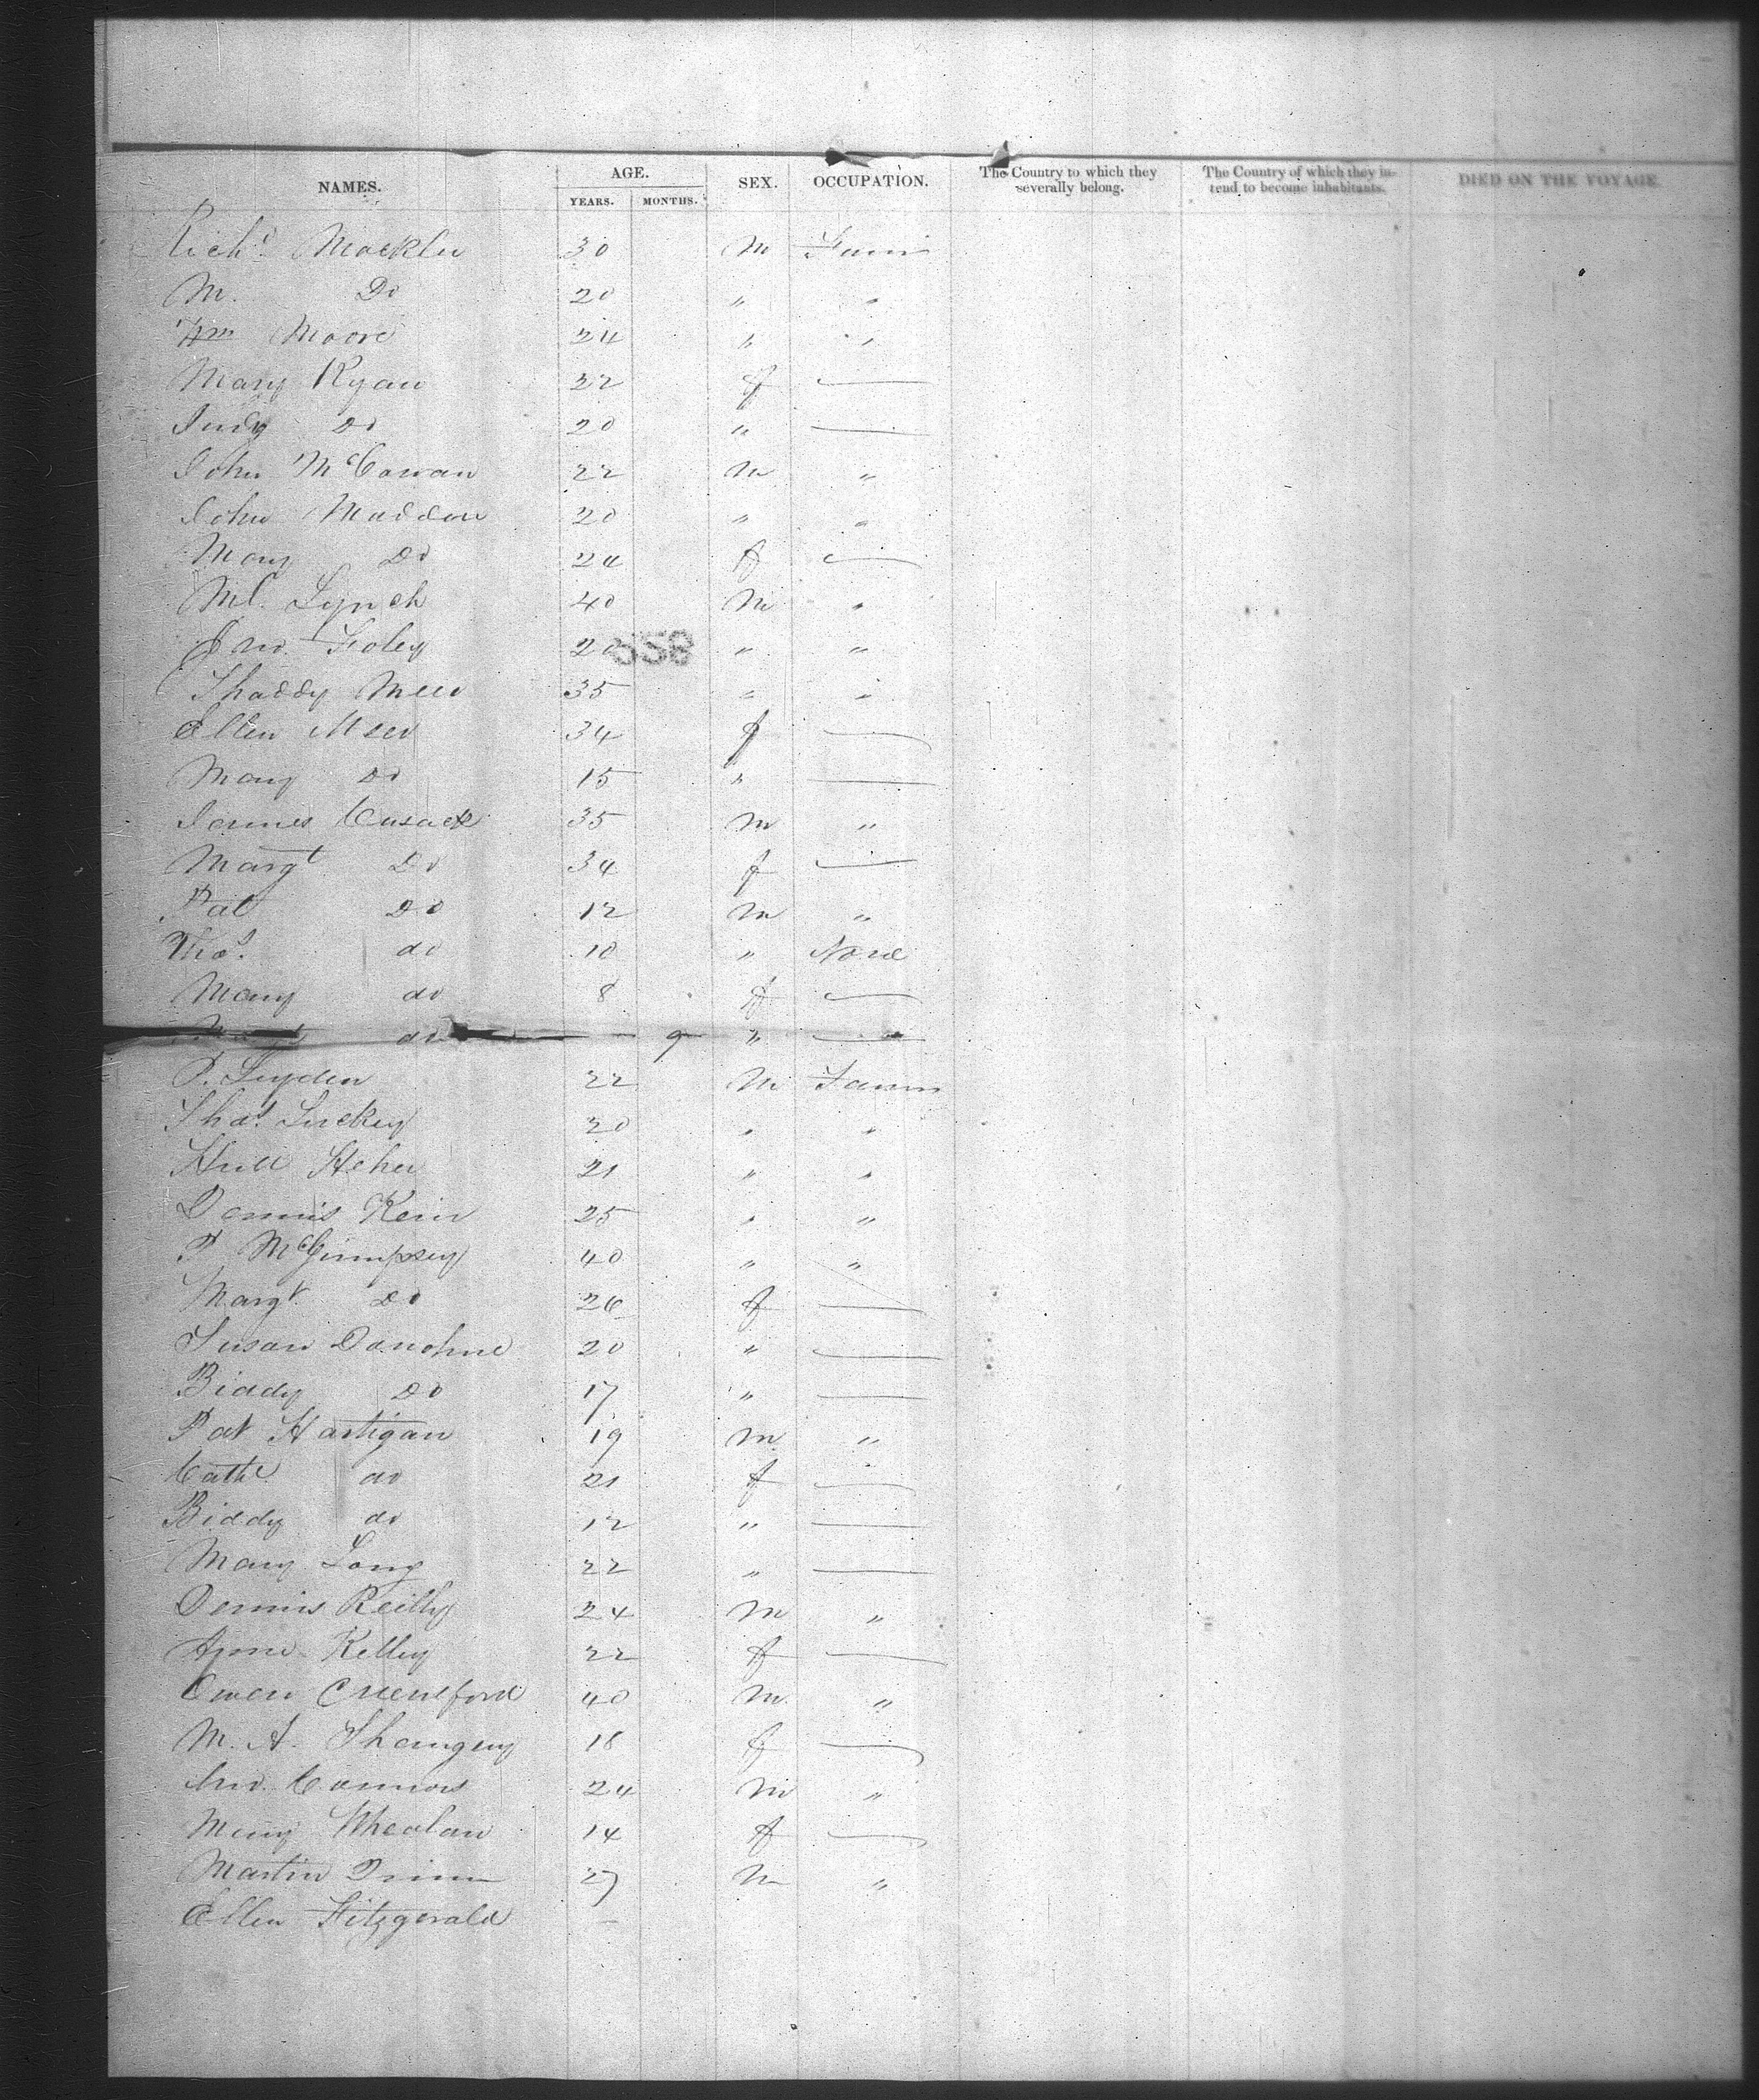 NAMES. AGE. YEARS. MONTHS. SEX. OCCUPATION. The Country to which they severally belong. The Country of which they intend to become inhabitants. DIED ON THE VOYAGE.
Richd. Mockler 30 M Farm
M. Do 20 " "
Wm Moore 24 " "
Mary Ryan 22 f —
Judy Do 20 " —
John McCowan 22 M "
John Madden 20 " "
Mary Do 24 f —
Ml. Lynch 40 M "
Jno. Foley 20 " "
Thaddy 35 " "
Ellen 34 f —
Mary Do 15 " —
James Cusack 35 M "
Margt Do 34 f —
Pat Do 12 M "
Thos. do 10 " None
Mary do 8 f —
do 9 " —
P. Leyden 22 M Farm
Thos. 20 " "
21 " "
Dennis Kein 25 " "
P McGimpsey 40 " "
Margt. Do 26 f —
Susan Donohue 20 " —
Biddy Do 17 " —
Pat Hartigan 19 M "
Cathe do 21 f —
Biddy do 12 " —
Mary Long 22 " —
Dennis Reilly 24 M "
Anne Kelley 22 f —
Owen 40 M "
M. A. 18 f —
Jno. Connors 24 M "
Mary Whealan 14 f —
Martin 27 M "
Ellen Fitzgerald —